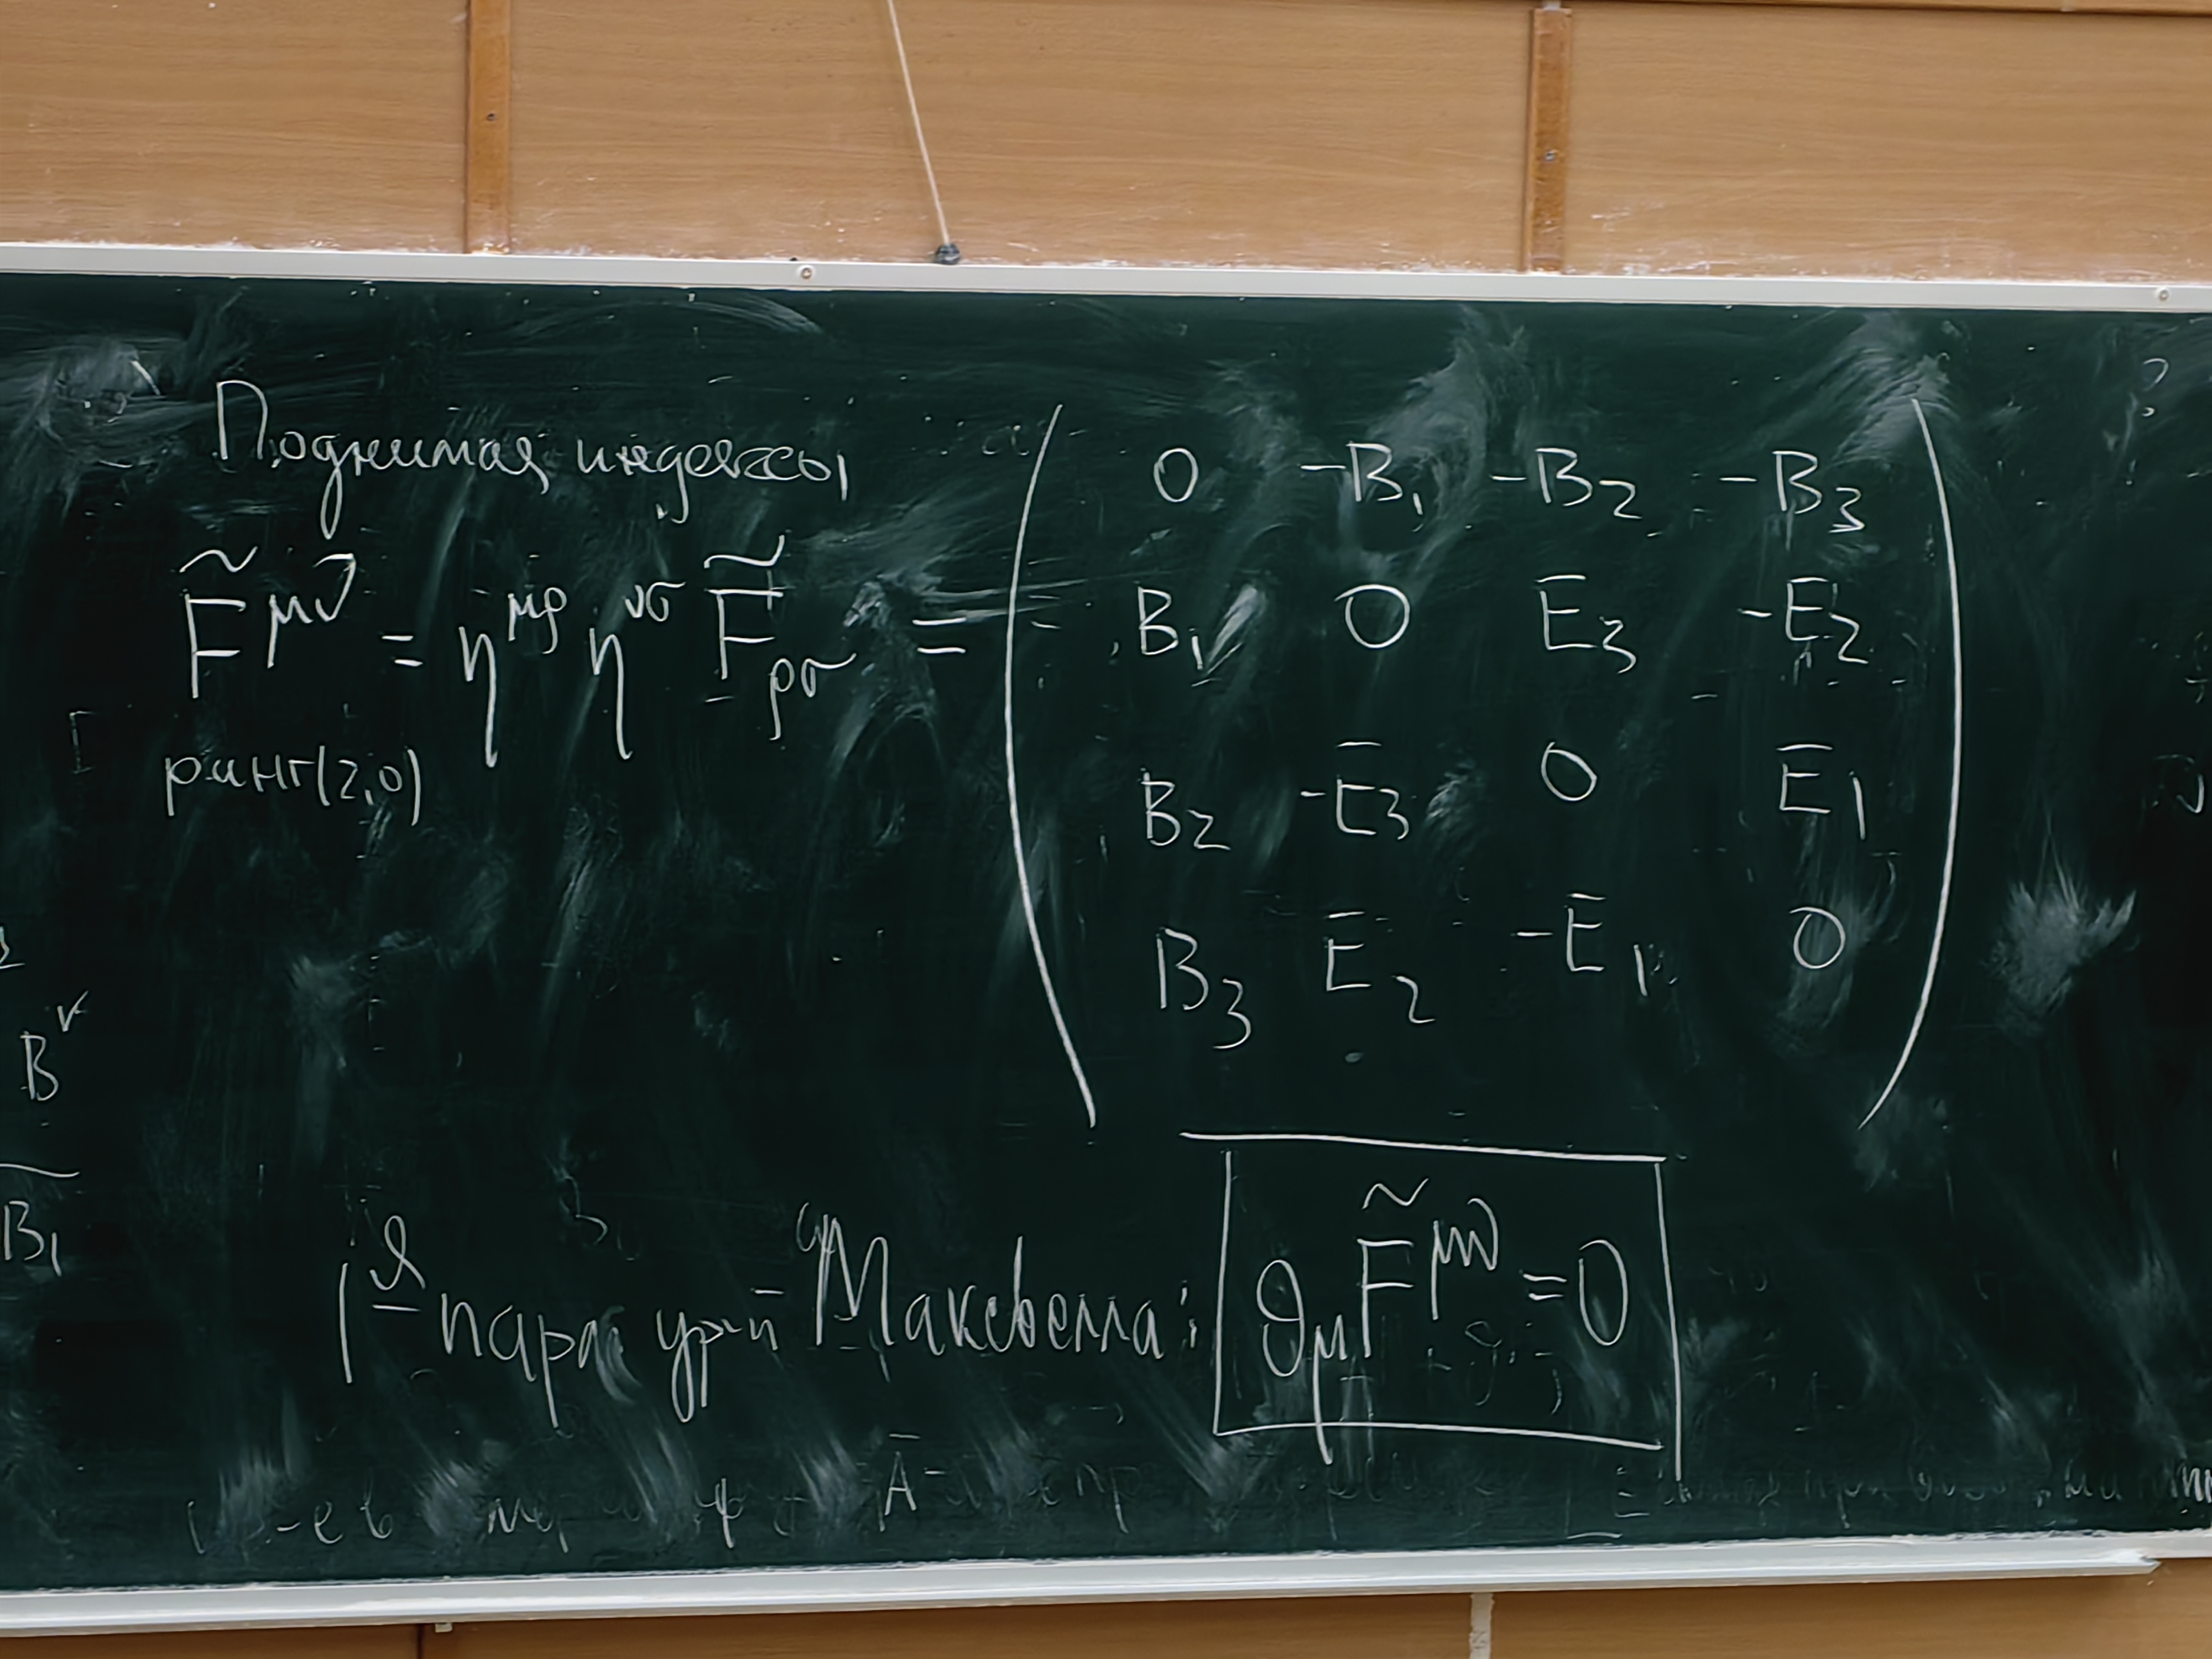 Поднимая индексы
F̃^{μν} = η^{μρ} η^{νσ} F̃_{ρσ} =
0 -B₁ -B₂ -B₃
B₁ 0 E₃ -E₂
B₂ -E₃ 0 E₁
B₃ E₂ -E₁ 0
ранг(2,0)
B
B₁
1я пара ур-й Максвелла: ∂_μ F̃^{μν} = 0